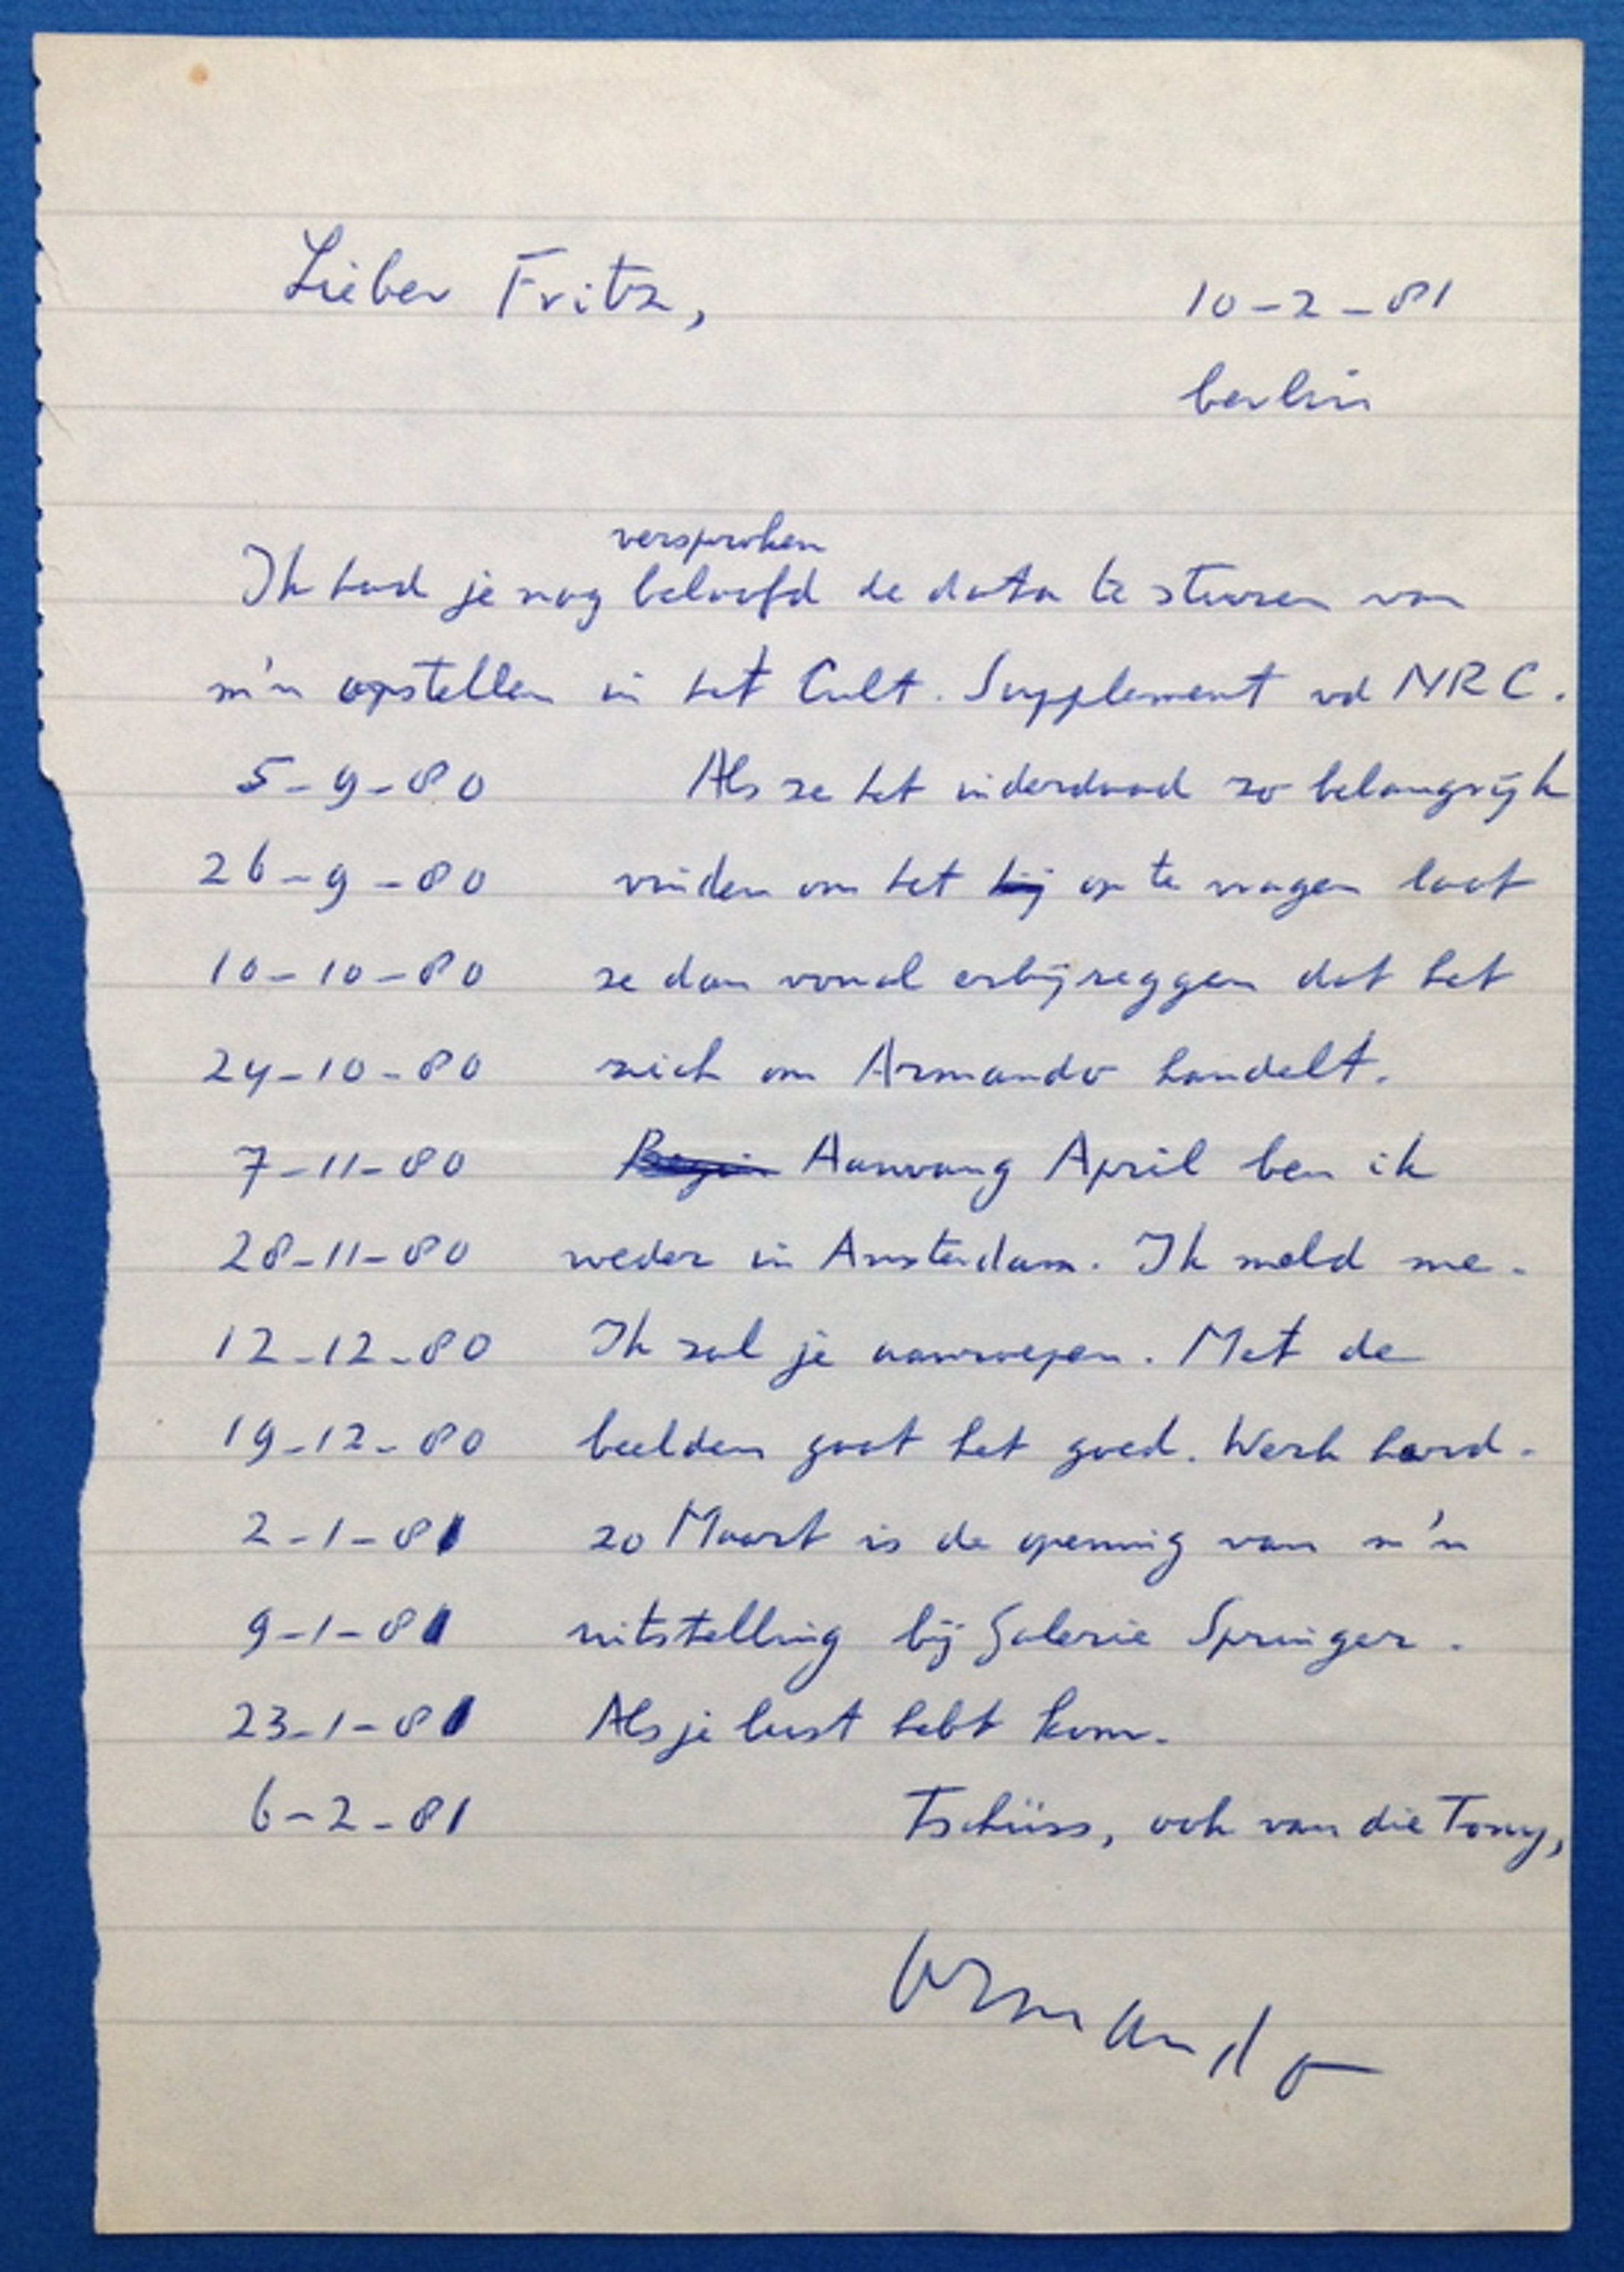 Lieber Fritz,
10-2-81
berlin
versprochen
Ik had je nog beloofd de data te sturen van
m'n opstellen in het Cult. Supplement vd NRC.
5-9-80 Als ze het inderdaad zo belangrijk
26-9-80 vinden om het bij op te vragen laat
10-10-80 ze dan vooral erbijzeggen dat het
24-10-80 sich om Armando handelt.
7-11-80 Begin Aanvang April ben ik
28-11-80 weder in Amsterdam. Ik meld me.
12-12-80 Ik zal je aanroepen. Met de
19-12-80 beelden gaat het goed. Werk hard.
2-1-81 20 Maart is de opening van m'n
9-1-81 uitstelling bij Galerie Springer.
23-1-81 Als je lust hebt kom.
6-2-81 Tschüss, ook van die Tony,
Armando